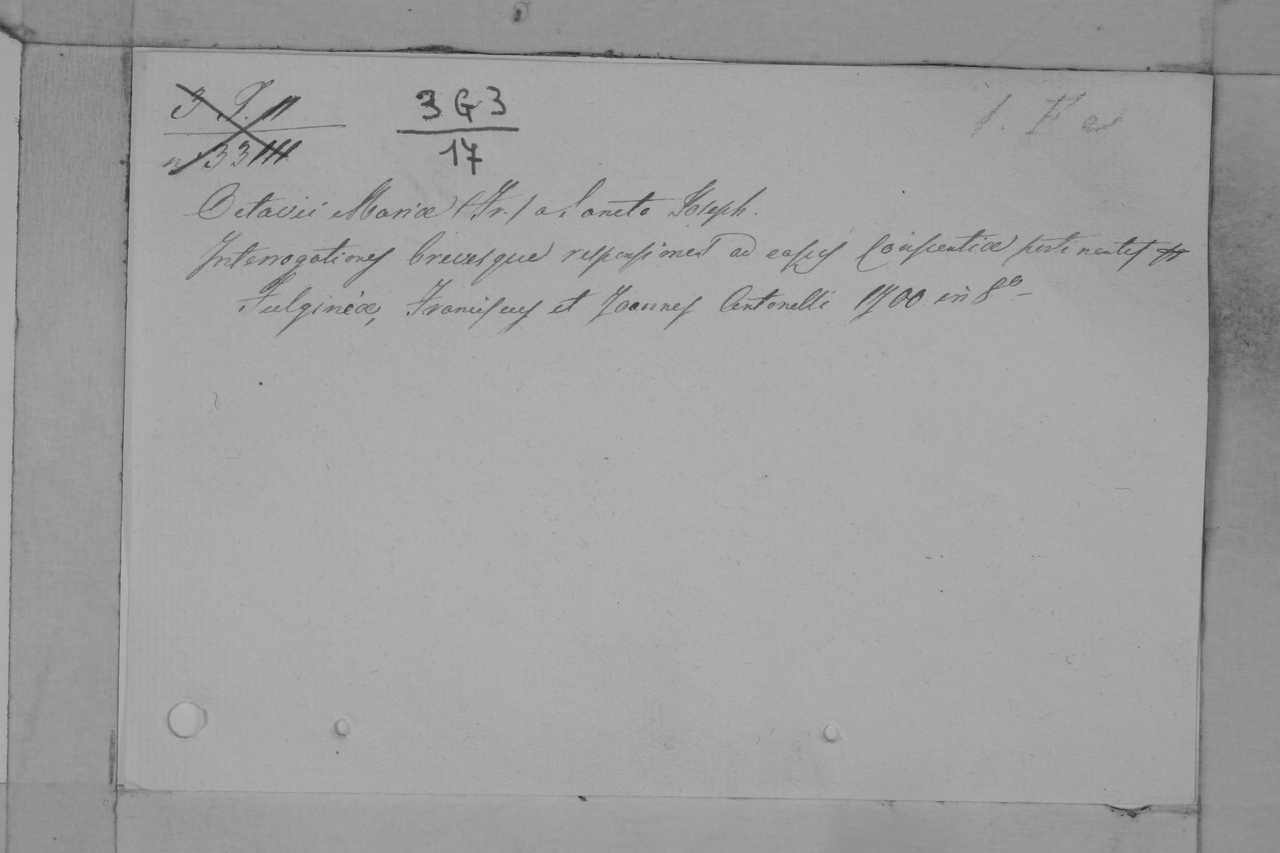 3 G 3
17
Octavii Mariæ (Fr.) a Sancto Joseph.
Interrogationes brevesque responsiones ad casus Conscientiæ pertinentes
Fulgineæ, Franciscus et Joannes Antonelli 1700 in 8º